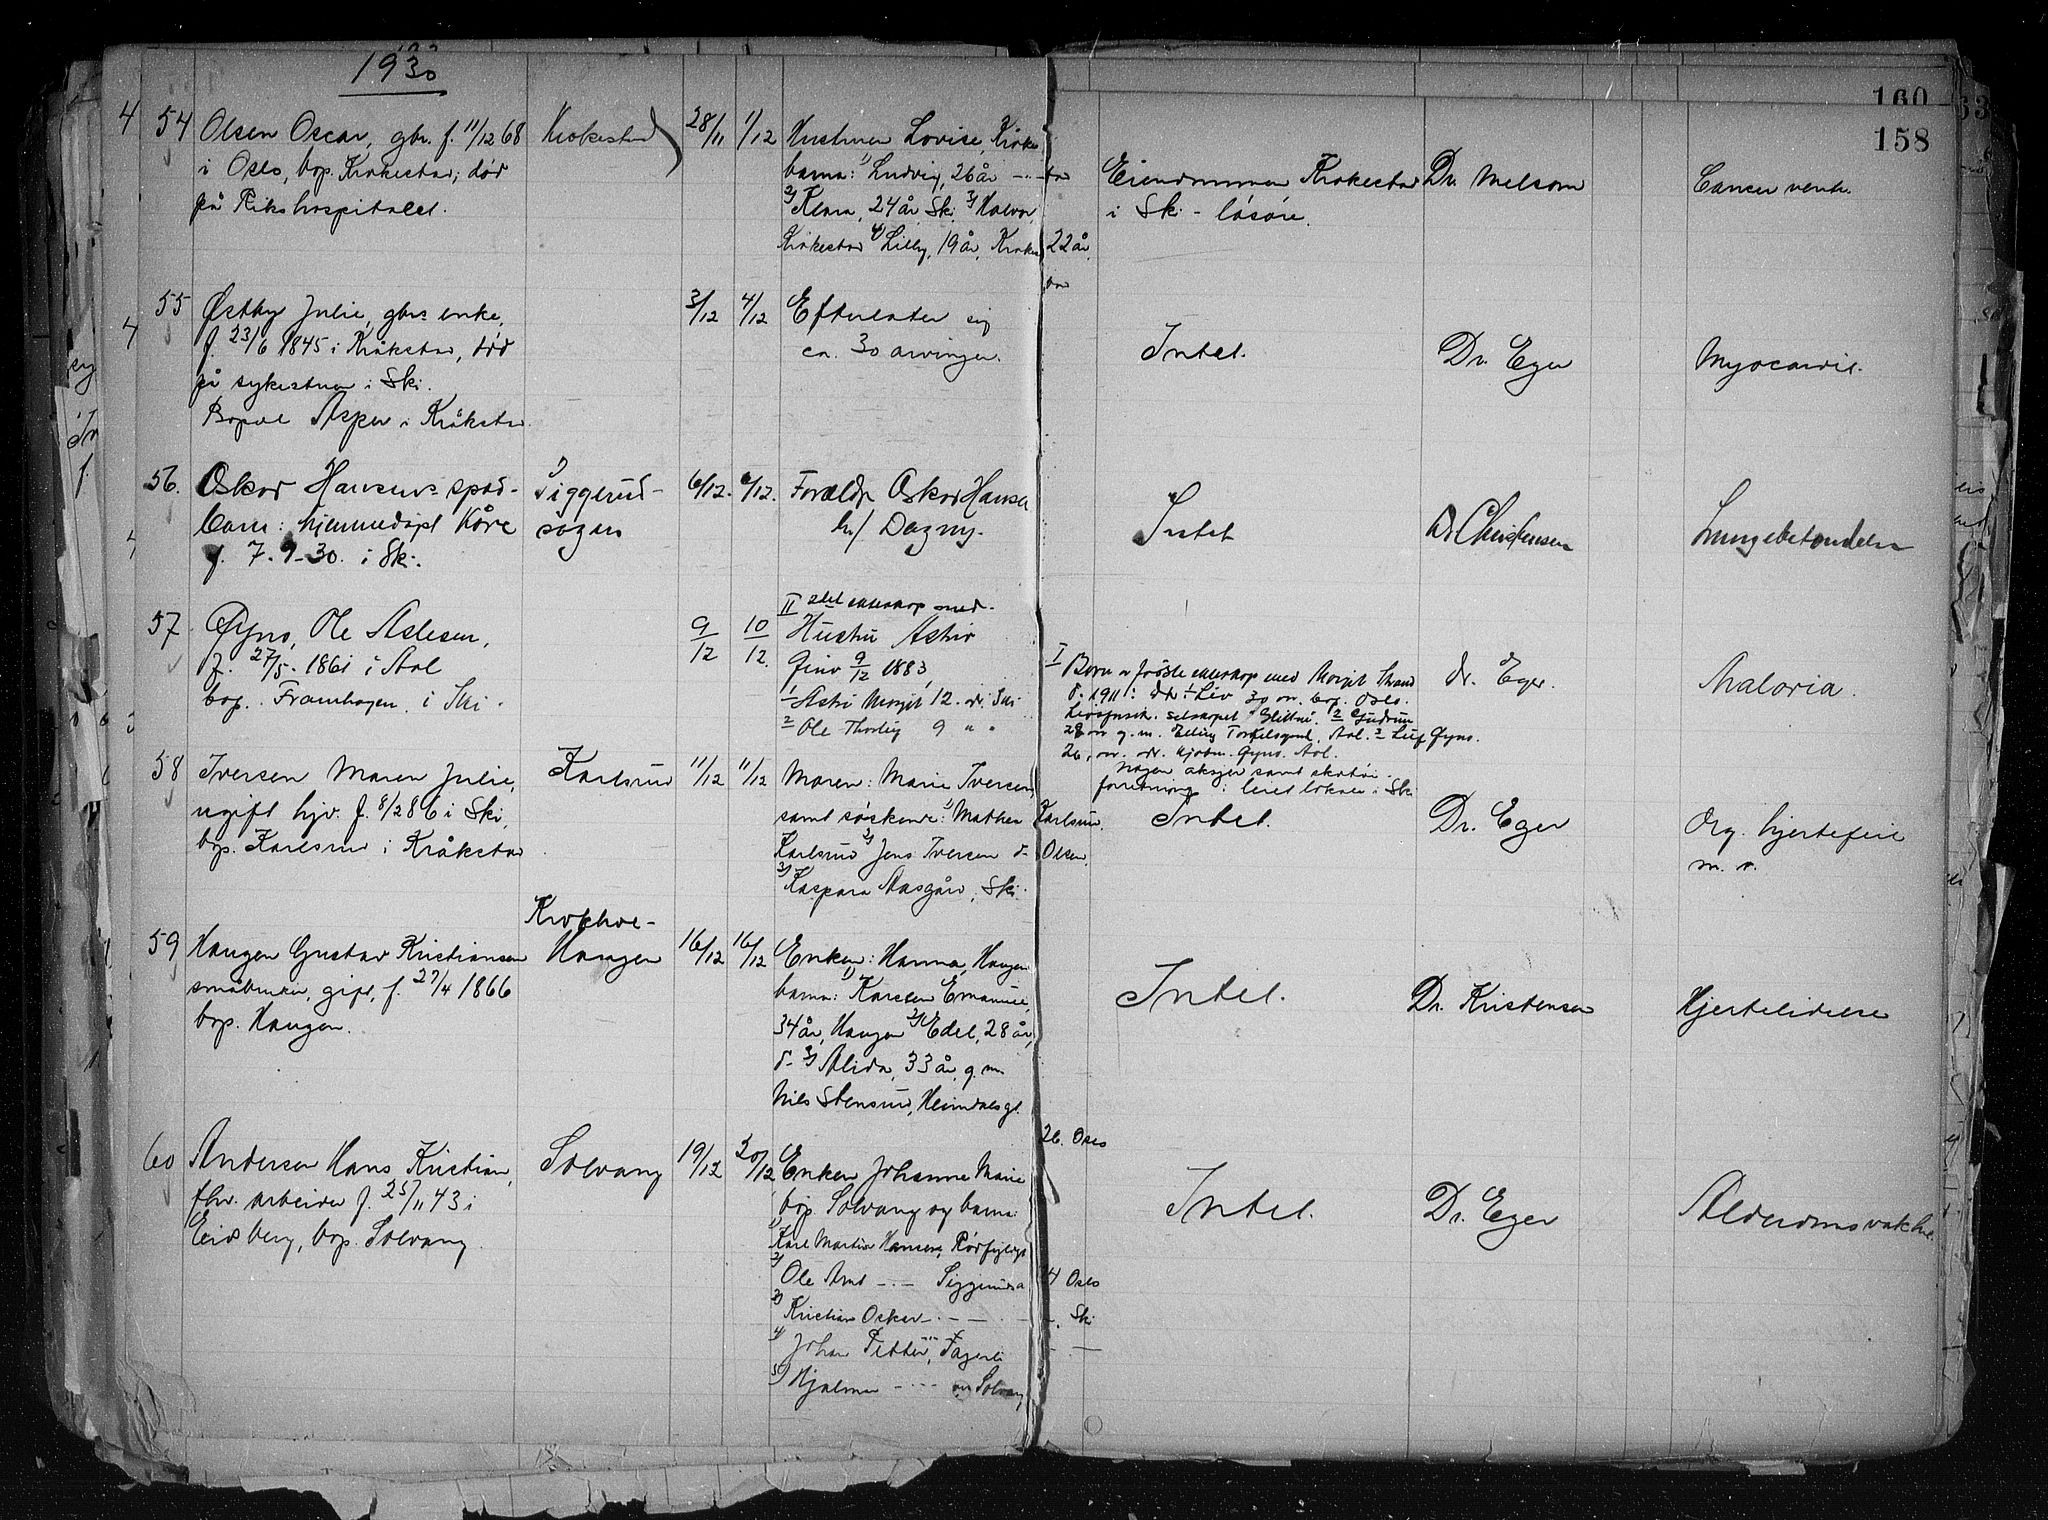 1930
160
158
54 Olsen Oscar, gbr. f. 11/12 68
i Oslo, bop. Kråkestad, død
på Rikshospitalet.
Krokestad
28/11 1/12
Hustruen Lovise, Kråke
barna: 1) Ludvig, 26 år -"-
2) Klara, 24 år, Ski, 3) Halvor, 22 år,
Kråkestad 4) Lilly, 19 år, Kråke
Eiendommen Krokestad
i Ski - løsøre.
Dr. Melsom
Cancer ventr.
55 Østby Julie, gbrs enke,
f. 23/6 1845 i Kråkstad, død
på sykestuen i Ski.
Bopæl Asper i Kråkstad.
3/12 4/12
Efterlater sig
ca. 30 arvinger.
Intet.
Dr. Eger
Myocardit.
56. Oskar Hansens spæd-
barn: hjemmedøpt Kåre
f. 7.9-30. i Ski.
Siggerud-
sogn
6/12. 6/12.
Foreldr Oskar Hansen
h/ Dagny.
Intet
Dr Christensen
Lungebetendelse
57. Øyno, Ole Aslesen,
f. 27/5. 1861 i Aal
bop. Framhagen i Ski.
9/12 10/12.
II 2det ekteskap med.
Hustru Astrid
9/12 1883,
1 Astri Margit 12. år. Ski
2 Ole Thorleiv 9 " "
I Barn av første ekteskap med Margit Strand
d. 1911: 1 Liv 30 år. bop. Oslo.
Livsforsik. selskapet Glitne. 2 Gudrun
28 år g. m. Elling Torkelsgard, Aal. 3 Leif Øyno.
26, år. Øyno. Aal.
Nogen aksjer samt skotøi-
forretning i leiet lokale i Ski
dr. Eger.
Malaria.
58 Iversen Maren Julie,
ugift hjv. f. 8/2 86 i Ski,
bop. Karlsrud i Kråkstad
Karlsrud
11/12 11/12
Moren: Marie Iversen,
samt søskende: 1) Mathea Karlsrud.
Karlsrud 2) Jens Iversen d- Olsen
3) Kaspara Aasgård, Ski.
Intet.
Dr. Eger
Org. hjertefeil
m. v.
59 Haugen Gustav Kristiansen
småbruker, gift, f. 27/4 1866
bop. Haugen.
Haugen
16/12 16/12
Enken: Hanna, Haugen
barna: 1) Karsten Emanuel,
34 år, Haugen 2) Edel, 28 år,
d- 3) Alida, 33 år, g. m.
Nils Stensrud, Heimdalsgt.
26. Oslo
Intet.
Dr. Kristensen
Hjertelidelse
60 Andersen Hans Kristian,
fhv. arbeider f. 25/11 43 i
Eidsberg, bop. Solvang.
Solvang
19/12 20/12
Enken Johanne Marie
bop. Solvang og barna:
1) Karl Martin Hansen, Rødfyllgt
2) Ole Ant -"- Siggerud 14 Oslo
3) Kristian Oskar -"- - -"- Ski
4) Johan Petter, Fagerli -"-
5) Hjalmar -"- Solvang
Intet.
Dr. Eger
Alderdomsvakhet.